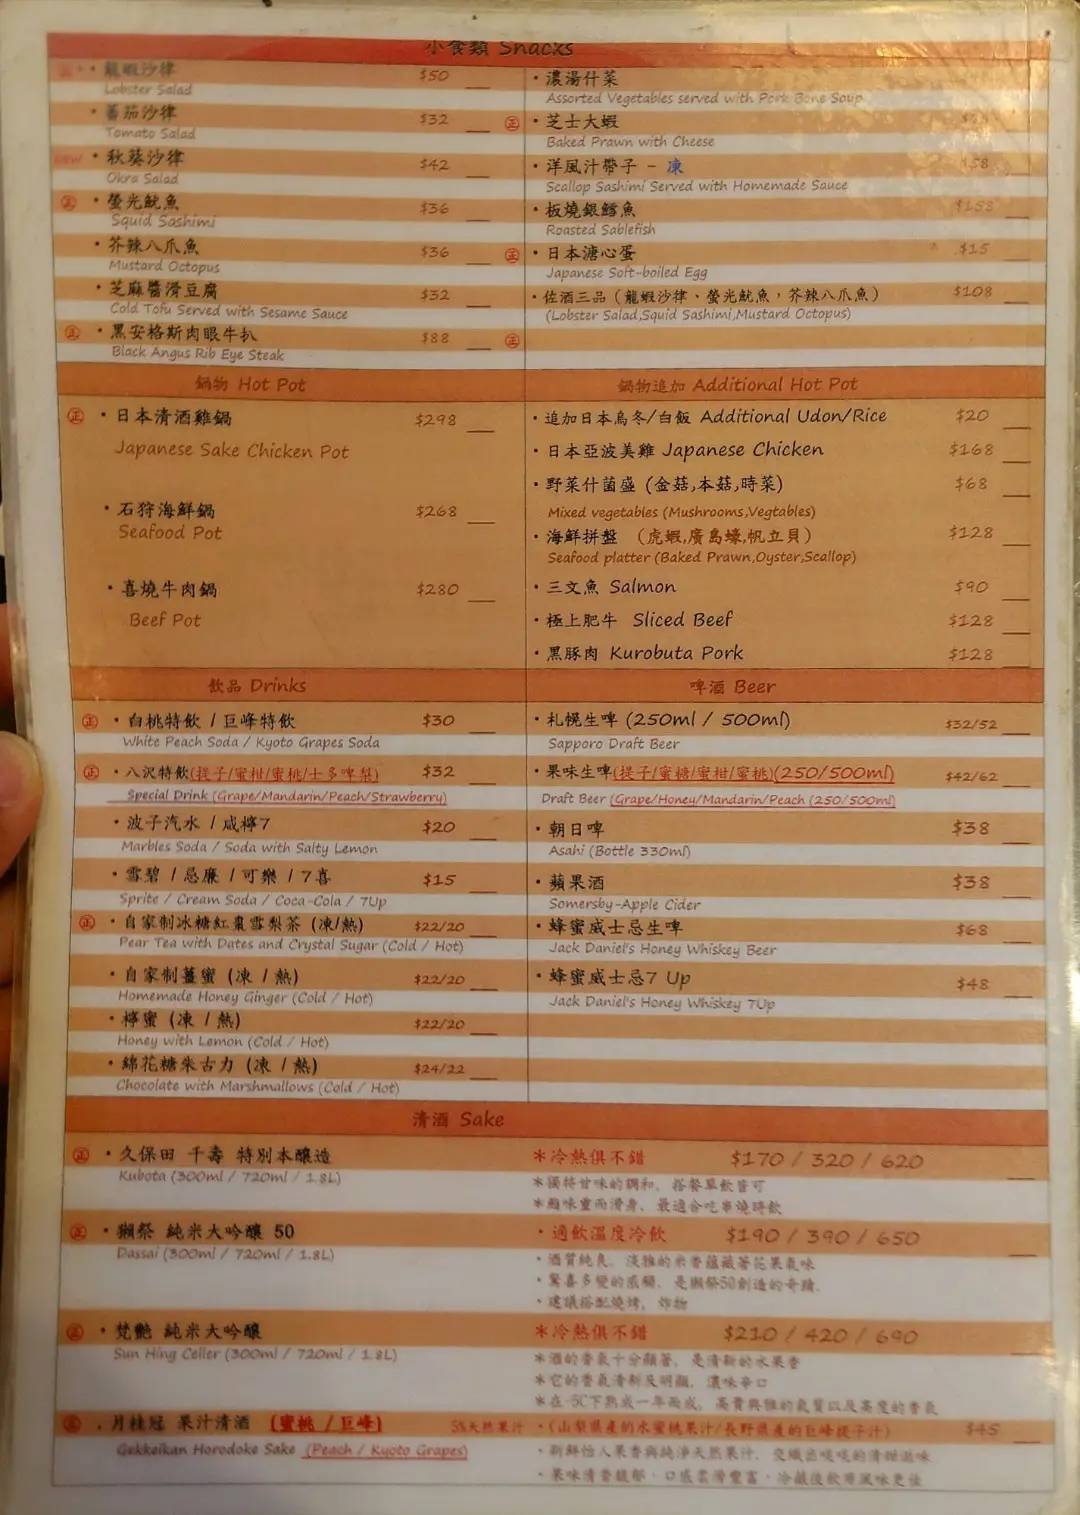 小食類 Snacks
・龍蝦沙律 $50
Lobster Salad
・蕃茄沙律 $32
Tomato Salad
new ・秋葵沙律 $42
Okra Salad
正 ・螢光魷魚 $36
Squid Sashimi
・芥辣八爪魚 $36
Mustard Octopus
・芝麻醬滑豆腐 $32
Cold Tofu Served with Sesame Sauce
正 ・黑安格斯肉眼牛扒 $88
Black Angus Rib Eye Steak
・濃湯什菜
Assorted Vegetables served with Pork Bone Soup
正 ・芝士大蝦
Baked Prawn with Cheese
・洋風汁帶子 - 凍
Scallop Sashimi Served with Homemade Sauce
・板燒銀鱈魚 $158
Roasted Sablefish
正 ・日本溏心蛋 $15
Japanese Soft-boiled Egg
・佐酒三品（龍蝦沙律、螢光魷魚，芥辣八爪魚） $108
(Lobster Salad,Squid Sashimi,Mustard Octopus)
正
鍋物 Hot Pot
正 ・日本清酒雞鍋 $298
Japanese Sake Chicken Pot
・石狩海鮮鍋 $268
Seafood Pot
・喜燒牛肉鍋 $280
Beef Pot
鍋物追加 Additional Hot Pot
・追加日本烏冬/白飯 Additional Udon/Rice $20
・日本亞波美雞 Japanese Chicken $168
・野菜什菌盛 (金菇,本菇,時菜) $68
Mixed vegetables (Mushrooms,Vegtables)
・海鮮拼盤 （虎蝦,廣島蠔,帆立貝） $128
Seafood platter (Baked Prawn,Oyster,Scallop)
・三文魚 Salmon $90
・極上肥牛 Sliced Beef $128
・黑豚肉 Kurobuta Pork $128
飲品 Drinks
正 ・白桃特飲 / 巨峰特飲 $30
White Peach Soda / Kyoto Grapes Soda
正 ・八沢特飲(提子/蜜柑/蜜桃/士多啤梨) $32
Special Drink (Grape/Mandarin/Peach/Strawberry)
・波子汽水 / 咸檸7 $20
Marbles Soda / Soda with Salty Lemon
・雪碧 / 忌廉 / 可樂 / 7喜 $15
Sprite / Cream Soda / Coca-Cola / 7Up
正 ・自家制冰糖紅棗雪梨茶 (凍/熱) $22/20
Pear Tea with Dates and Crystal Sugar (Cold / Hot)
・自家制薑蜜 (凍 / 熱) $22/20
Homemade Honey Ginger (Cold / Hot)
・檸蜜 (凍 / 熱) $22/20
Honey with Lemon (Cold / Hot)
・綿花糖朱古力 (凍 / 熱) $24/22
Chocolate with Marshmallows (Cold / Hot)
啤酒 Beer
・札幌生啤 (250ml / 500ml) $32/52
Sapporo Draft Beer
・果味生啤(提子/蜜糖/蜜柑/蜜桃)(250/500ml) $42/62
Draft Beer (Grape/Honey/Mandarin/Peach (250/500ml)
・朝日啤 $38
Asahi (Bottle 330ml)
・蘋果酒 $38
Somersby-Apple Cider
・蜂蜜威士忌生啤 $68
Jack Daniel's Honey Whiskey Beer
・蜂蜜威士忌7 Up $48
Jack Daniel's Honey Whiskey 7Up
清酒 Sake
正 ・久保田 千壽 特別本釀造 *冷熱俱不錯 $170 / 320 / 620
Kubota (300ml / 720ml / 1.8L)
*獨特甘味的調和，搭餐單飲皆可
正 ・獺祭 純米大吟釀 50 ・適飲溫度冷飲 $190 / 390 / 650
Dassai (300ml / 720ml / 1.8L)
・酒質純良，淡雅的米香蘊藏著花果氣味
・驚喜多變的感觸，是獺祭50創造的奇蹟。
・建議搭配燒烤，炸物
正 ・梵艷 純米大吟釀 *冷熱俱不錯 $210 / 420 / 690
Sun Hing Celler (300ml / 720ml / 1.8L)
*酒的香氣十分顯著，是清新的水果香
*它的香氣清新及明顯，濃味辛口
*在-5C下熟成一年而成，高貴典雅的氣質以及高度的香氣
正 ・月桂冠 果汁清酒 (蜜桃 / 巨峰) 5%天然果汁 ・(山梨県産的水蜜桃果汁/長野県産的巨峰提子汁) $45
Gekkeikan Horodoke Sake (Peach / Kyoto Grapes)
・新鮮怡人果香與純淨天然果汁，交織出啖啖的清甜滋味